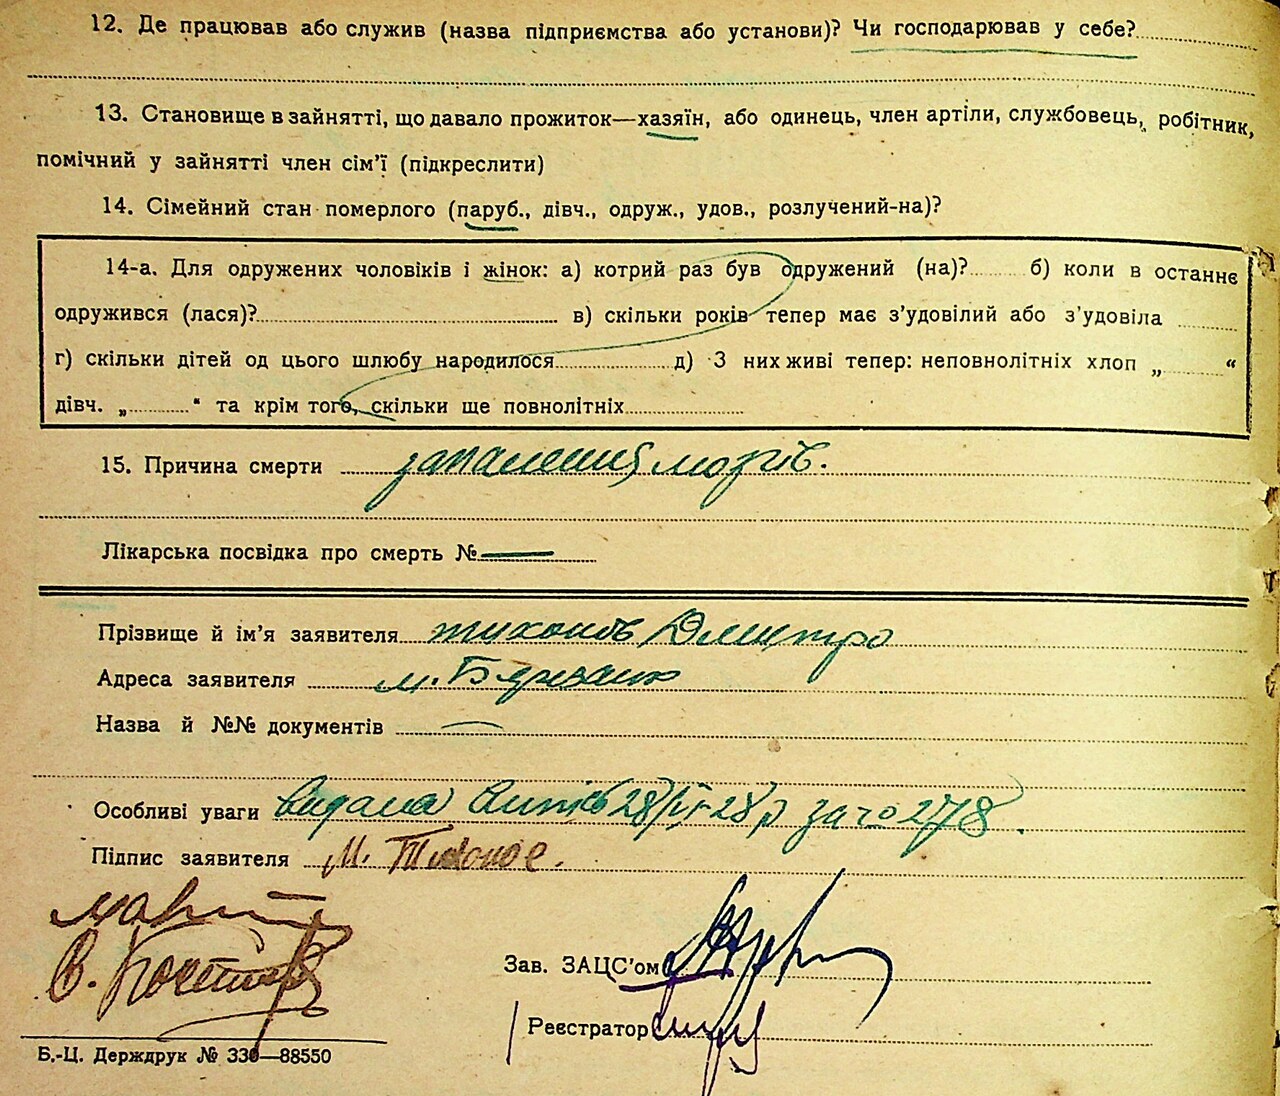 12. Де працював або служив (назва підприємства або установи)? Чи господарював у себе?
13. Становище в зайнятті, що давало прожиток—хазяїн, або одинець, член артіли, службовець, робітник,
помічний у зайнятті член сім'ї (підкреслити)
14. Сімейний стан померлого (паруб., дівч., одруж., удов., розлучений-на)?
14-а. Для одружених чоловіків і жінок: а) котрий раз був одружений (на)? б) коли в останнє
одружився (лася)? в) скільки років тепер має з'удовілий або з'удовіла
г) скільки дітей од цього шлюбу народилося д) З них живі тепер: неповнолітніх хлоп „ “
дівч. „ “ та крім того, скільки ще повнолітніх
15. Причина смерти запалення мозгів.
Лікарська посвідка про смерть № —
Прізвище й ім'я заявителя Тихонов Дмитро
Адреса заявителя м.
Назва й №№ документів —
Особливі уваги видана 28/IV-28р за № 27/8.
Підпис заявителя М. Тихонов.
Зав. ЗАЦС'ом
Реєстратор
Б.-Ц. Держдрук № 330—88550